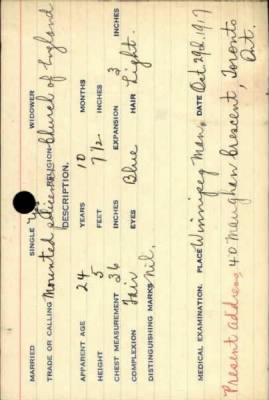 MARRIED SINGLE Yes WIDOWER
TRADE OR CALLING Mounted police RELIGION Church of England
DESCRIPTION.
APPARENT AGE 24 YEARS 10 MONTHS
HEIGHT 5 FEET 7 1/2 INCHES
CHEST MEASUREMENT 36 INCHES EXPANSION 3 INCHES
COMPLEXION Fair EYES Blue HAIR Light.
DISTINGUISHING MARKS Nil.
MEDICAL EXAMINATION. PLACE Winnipeg Man. DATE Oct 29th. 1917
Present address, 40 Maughan Crescent, Toronto
Ont.